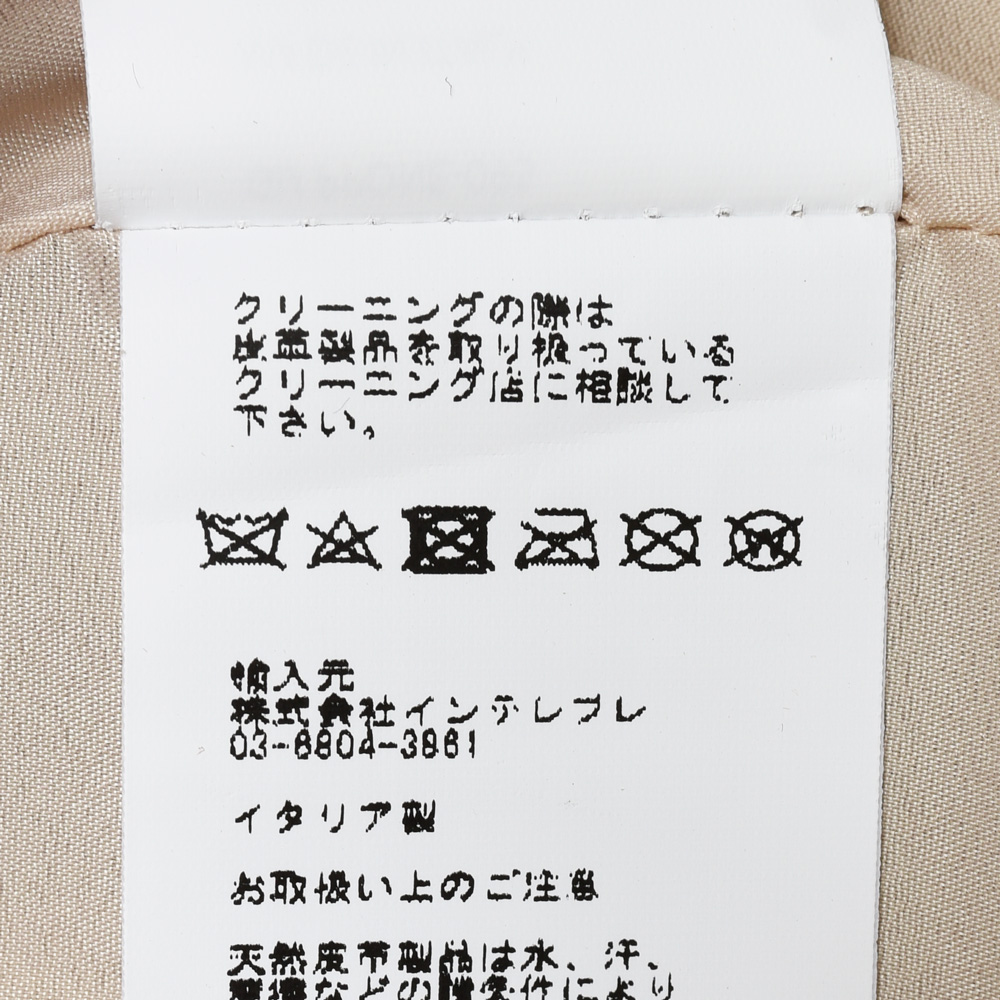 クリーニングの際は
皮革製品を取り扱っている
クリーニング店に相談して
下さい。
W
輸入元
株式会社インテレプレ
03-6804-3861
イタリア製
お取扱い上のご注意
天然皮革製品は水、汗、
などの諸条件により